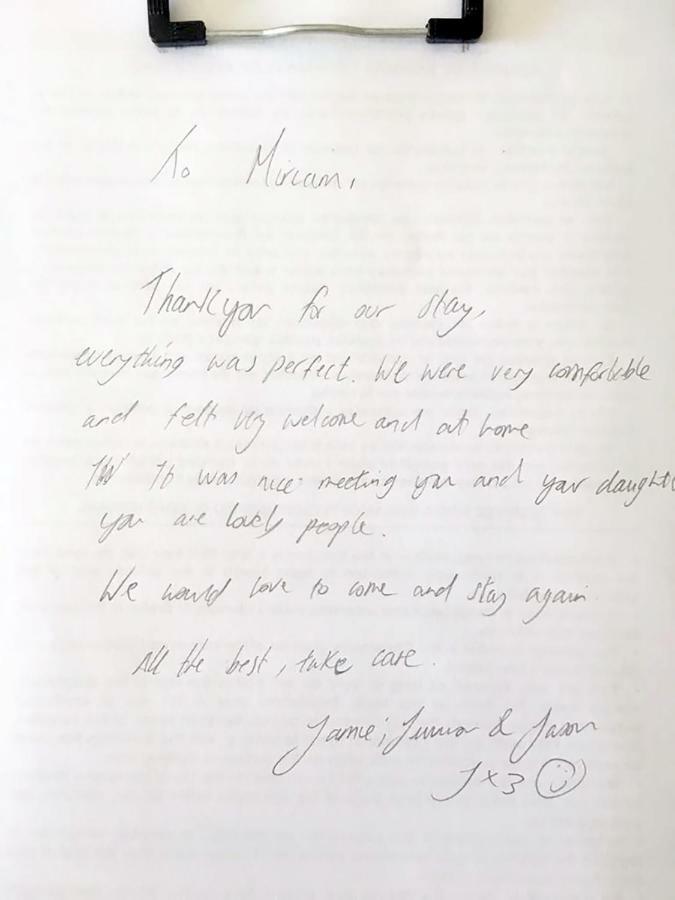 To Miriam,
Thankyou for our stay,
everything was perfect. We were very comfortable
and felt very welcome and at home
It was nice meeting you and your daughter
you are lovely people.
We would love to come and stay again.
All the best, take care.
Jamie, Junior & Jason
J x 3